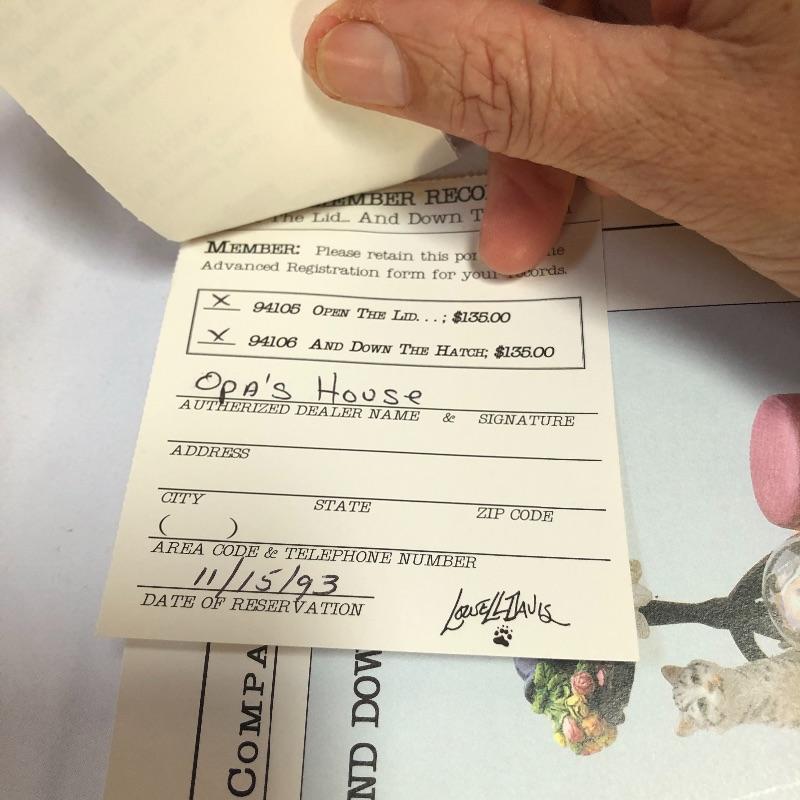 MBER RECO
The Lid... And Down T
MEMBER: Please retain this
Advanced Registration form for your records.
X 94105 OPEN THE LID. . .; $135.00
X 94106 AND DOWN THE HATCH; $135.00
Opa's House
AUTHERIZED DEALER NAME & SIGNATURE
ADDRESS
CITY STATE ZIP CODE
( )
AREA CODE & TELEPHONE NUMBER
11/15/93
DATE OF RESERVATION
LOWELL DAVIS
COMPA
ND DOW